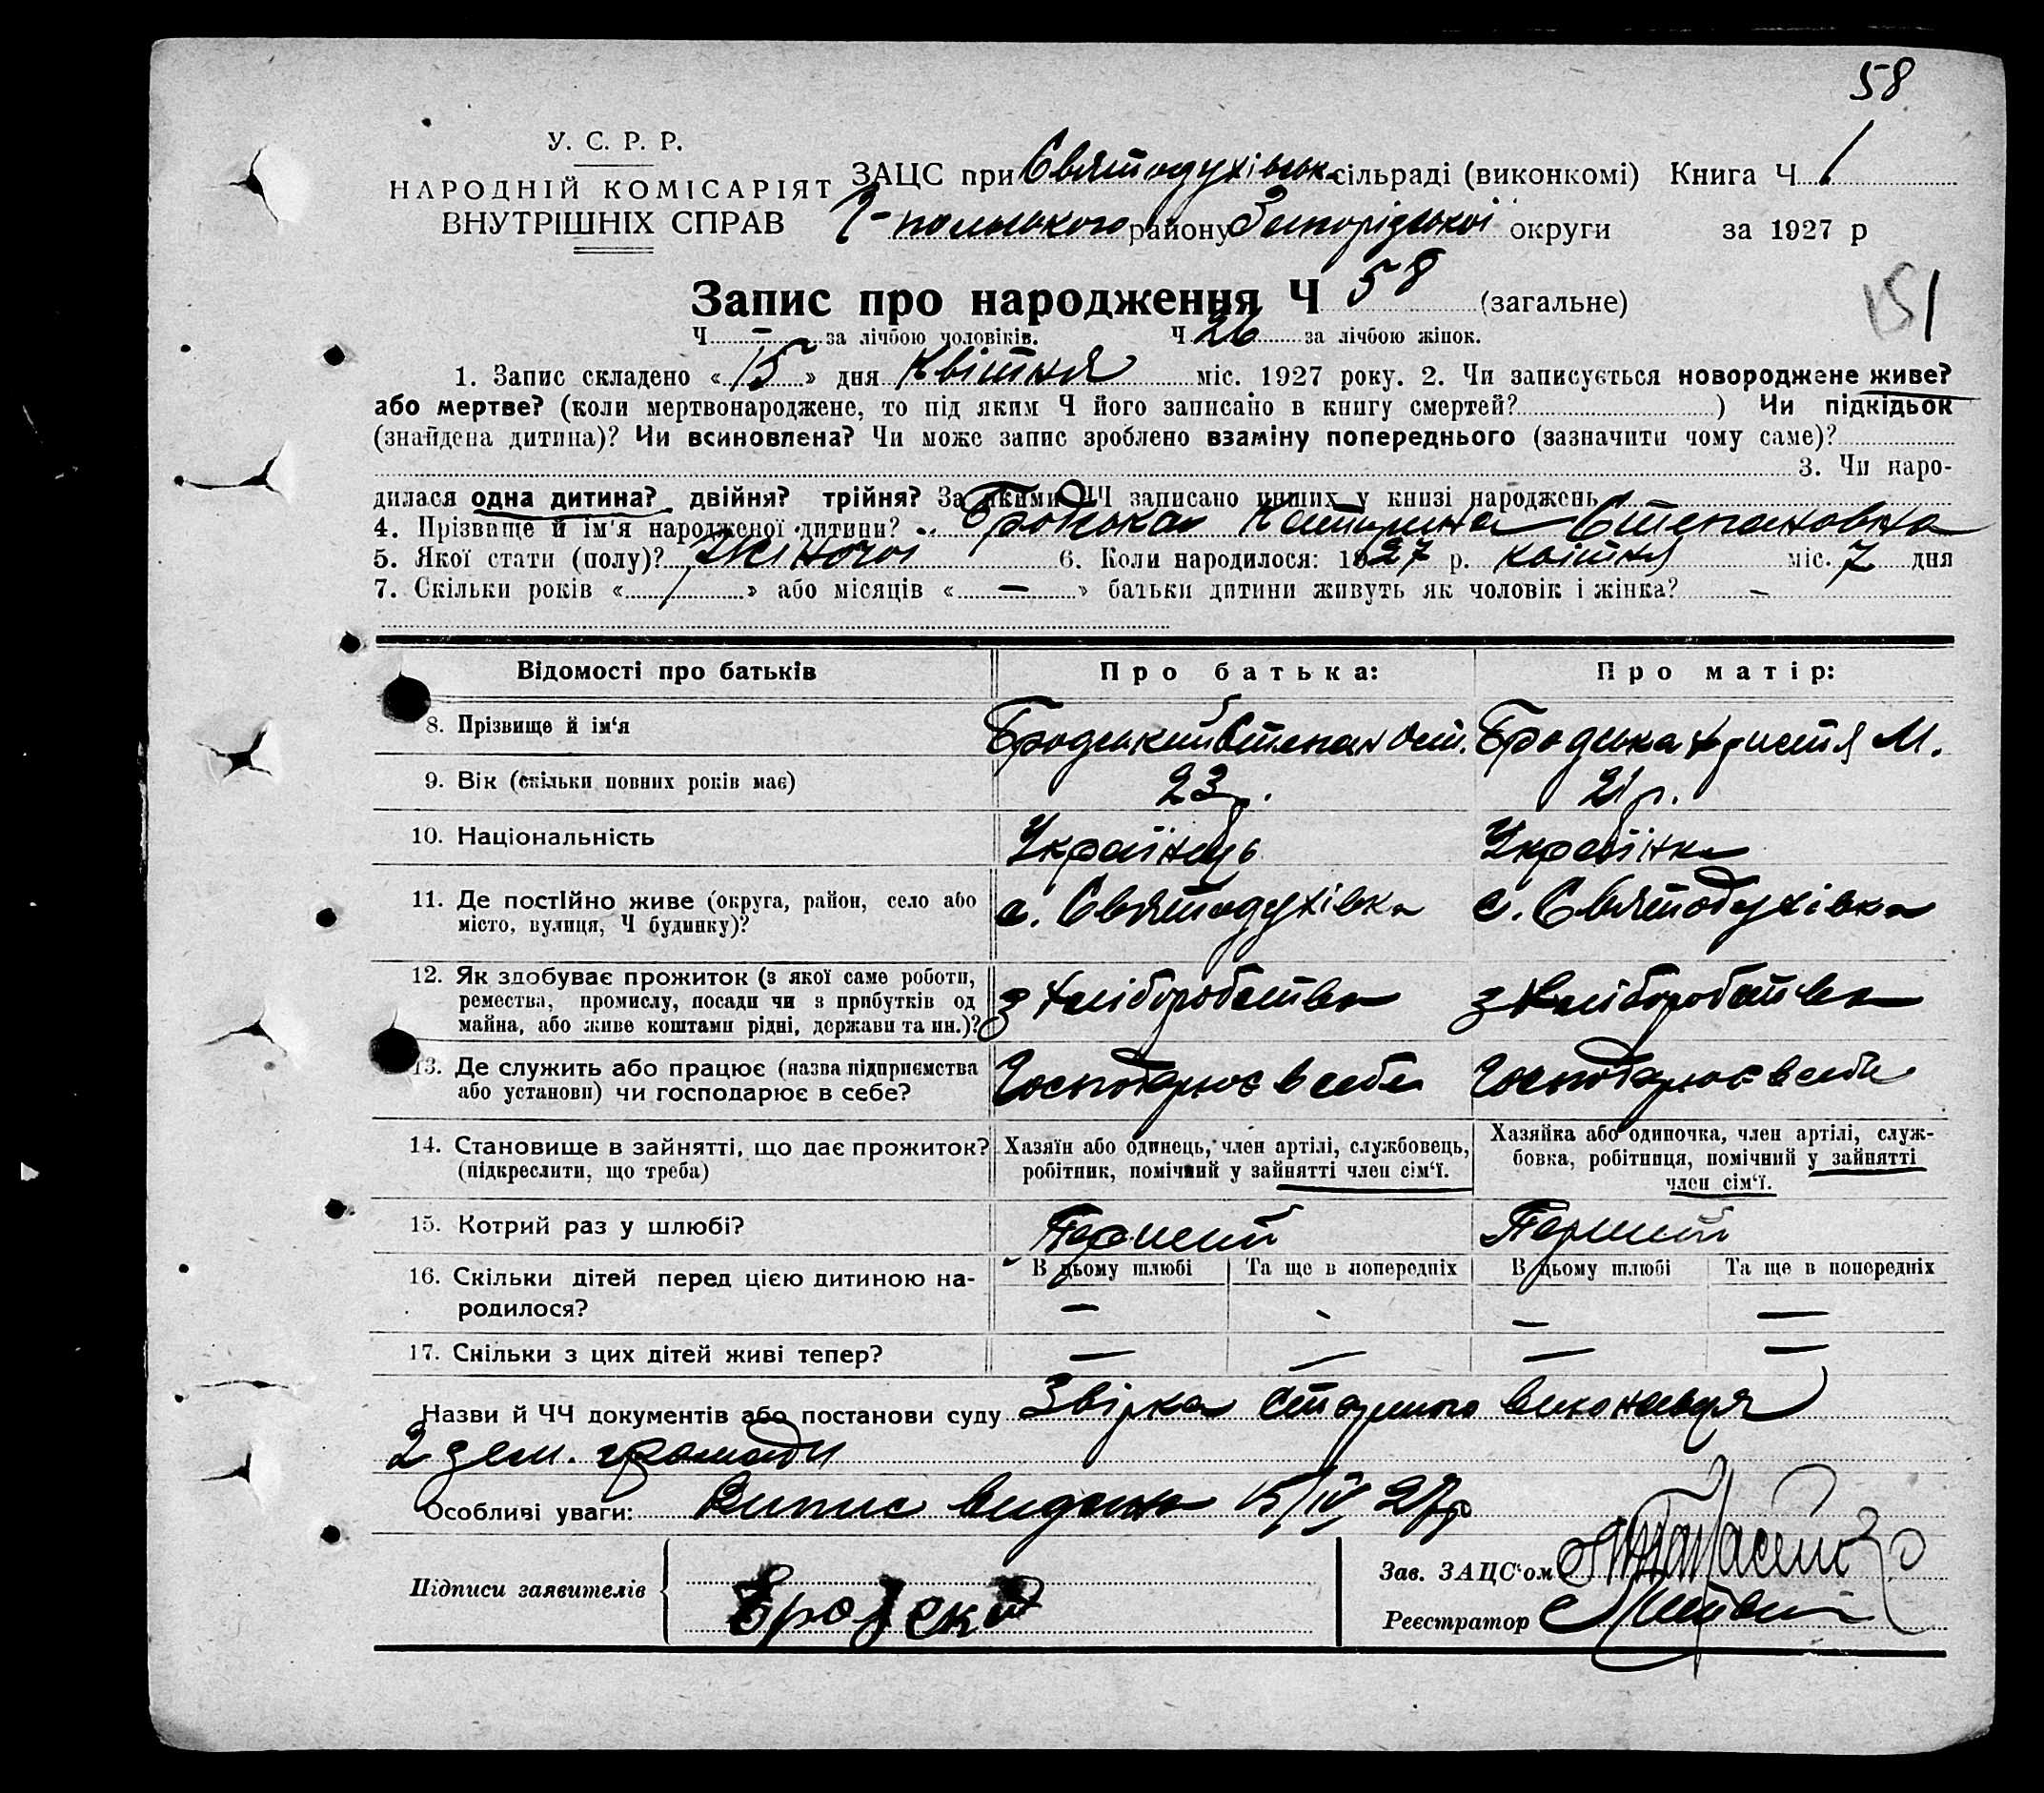 58
У. С. Р. Р.
НАРОДНІЙ КОМІСАРІЯТ
ВНУТРІШНІХ СПРАВ
ЗАЦС при Святодухівськ. сільраді (виконкомі) Книга Ч 1
Г-польського району Запорізської округи за 1927 р
Запис про народження Ч 58 (загальне)
151
Ч. – за лічбою чоловіків. Ч 26 за лічбою жінок.
1. Запис складено «15» дня Квітня міс. 1927 року. 2. Чи записується новороджене живе?
або мертве? (коли мертвонароджене, то під яким Ч його записано в книгу смертей? ) Чи підкідьок
(знайдена дитина)? Чи всиновлена? Чи може запис зроблено взаміну попереднього (зазначити чому саме)?
3. Чи наро-
дилася одна дитина? двійня? трійня? За якими ЧЧ записано инших у книзі народжень
4. Прізвище й ім'я народженої дитини? Бродська Катерина Степановна
5. Якої стати (полу)? Жіночої 6. Коли народилося: 1927 р. квітня міс. 7 дня
7. Скільки років « 1 » або місяців « — » батьки дитини живуть як чоловік і жінка? –
Відомості про батьків Про батька: Про матір:
8. Прізвище й ім‘я Бродський Степан Ост. Бродська Христя М.
9. Вік (скільки повних років має) 23 р. 21 р.
10. Національність Українець Українка
11. Де постійно живе (округа, район, село або
місто, вулиця, Ч будинку)? с. Святодухівка с. Святодухівка
12. Як здобуває прожиток (з якої саме роботи,
ремества, промислу, посади чи з прибутків од
майна, або живе коштами рідні, держави та ин.)? з хліборобства з хліборобства
13. Де служить або працює (назва підприємства
або установи) чи господарює в себе? Господарює в себе Господарює в себе
14. Становище в зайнятті, що дає прожиток?
(підкреслити, що треба)
Хазяїн або одинець, член артілі, службовець,
робітник, помічний у зайнятті член сім‘ї.
Хазяйка або одиночка, член артілі, служ-
бовка, робітниця, помічний у зайнятті
член сім‘ї.
15. Котрий раз у шлюбі? Перший Перший
16. Скільки дітей перед цією дитиною на-
родилося?
В цьому шлюбі Та ще в попередніх В цьому шлюбі Та ще в попередніх
— - — —
17. Скільки з цих дітей живі тепер? — — — —
Назви й ЧЧ документів або постанови суду Звірка старшого виконавця
2 зем. громади
Особливі уваги: Випис видано 15/IV 27 р
Підписи заявителів
Зав. ЗАЦС‘ом
Реєстратор